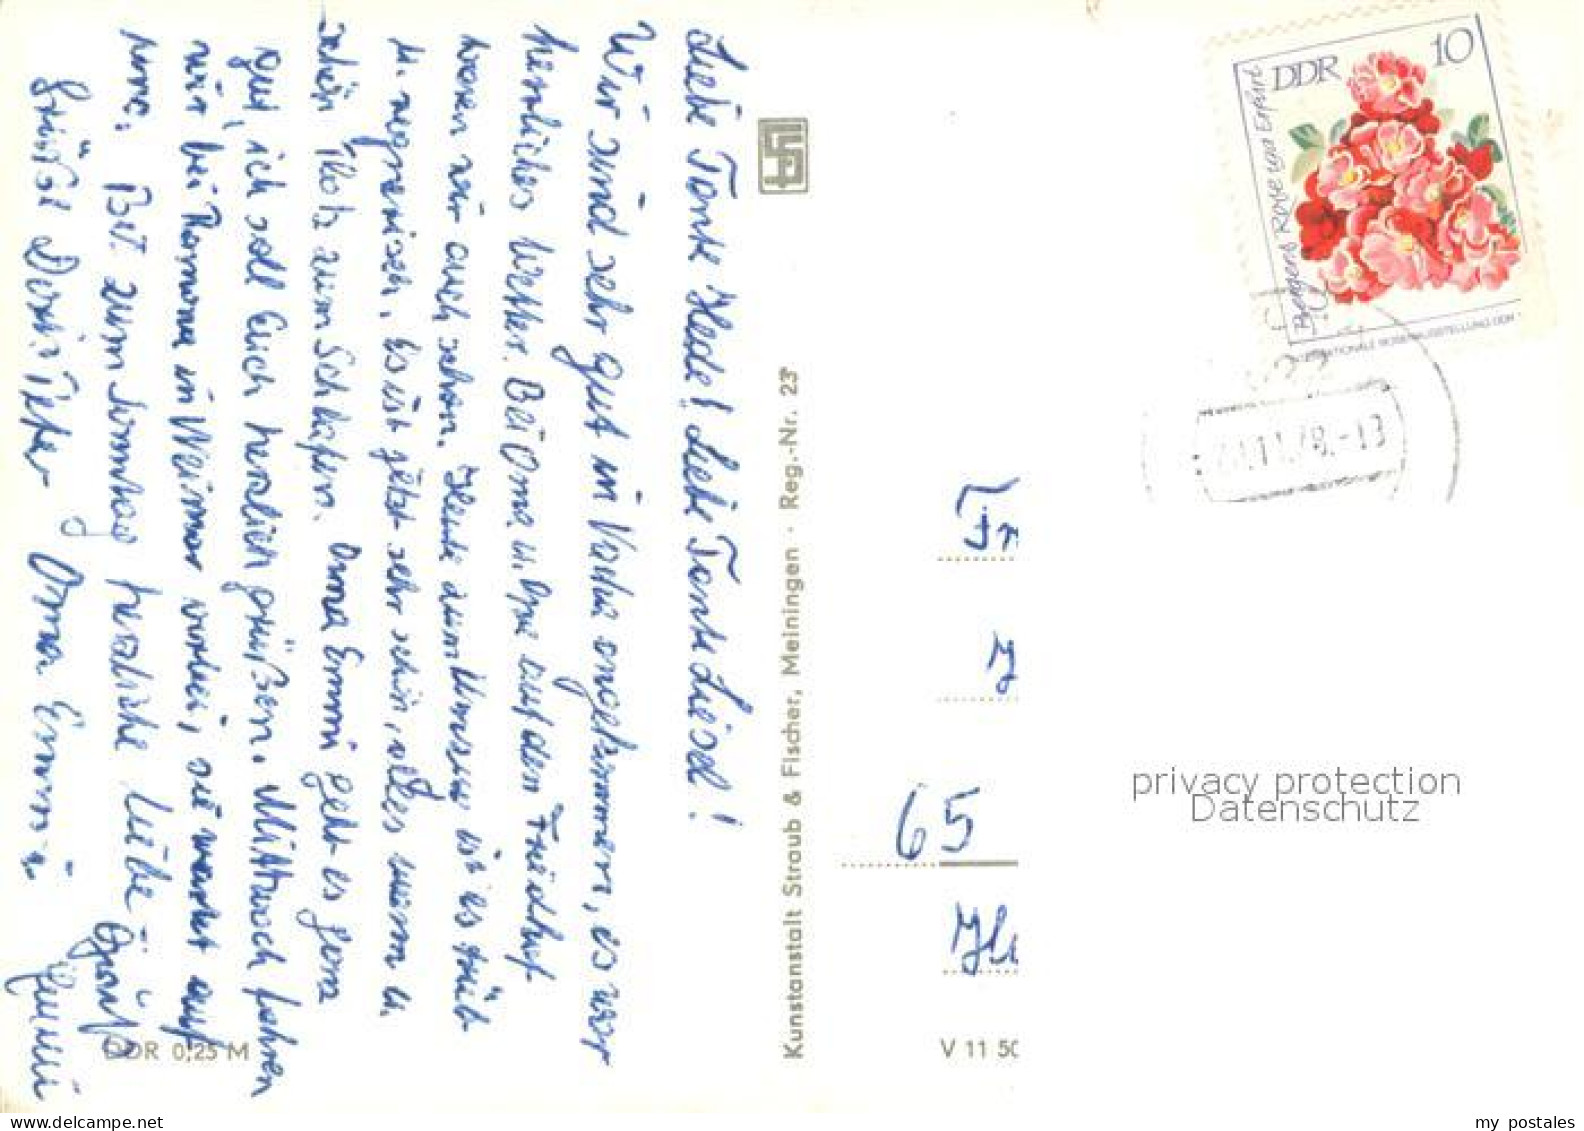 Liebe Tante Hede! Liebe Tante Liesel!
Wir sind sehr gut in Vacha angekommen, es war
herrliches Wetter. Bei Oma u. Opa auf dem Friedhof
waren wir auch schon. Heute zum Umzug ist es trüb
u. regnerisch, es ist jetzt sehr schön, alles warm u.
schön Platz zum Schlafen. Oma Emmi geht es ganz
gut, ich soll Euch herzlich grüßen. Mittwoch fahren
wir bei Romana in Weimar vorbei, sie wartet auf
uns. Bis zum Sonntag herzliche liebe
Grüße Oma Emmi u.
DDR 0,25 M
Kunstanstalt Straub & Fischer, Meiningen · Reg.-Nr. 23
DDR 10
Bergers Rose aus Erfurt
INTERNATIONALE ROSENAUSSTELLUNG DDR
11.78.-13
Fr
65
V 11 50
privacy protection
Datenschutz
my postales